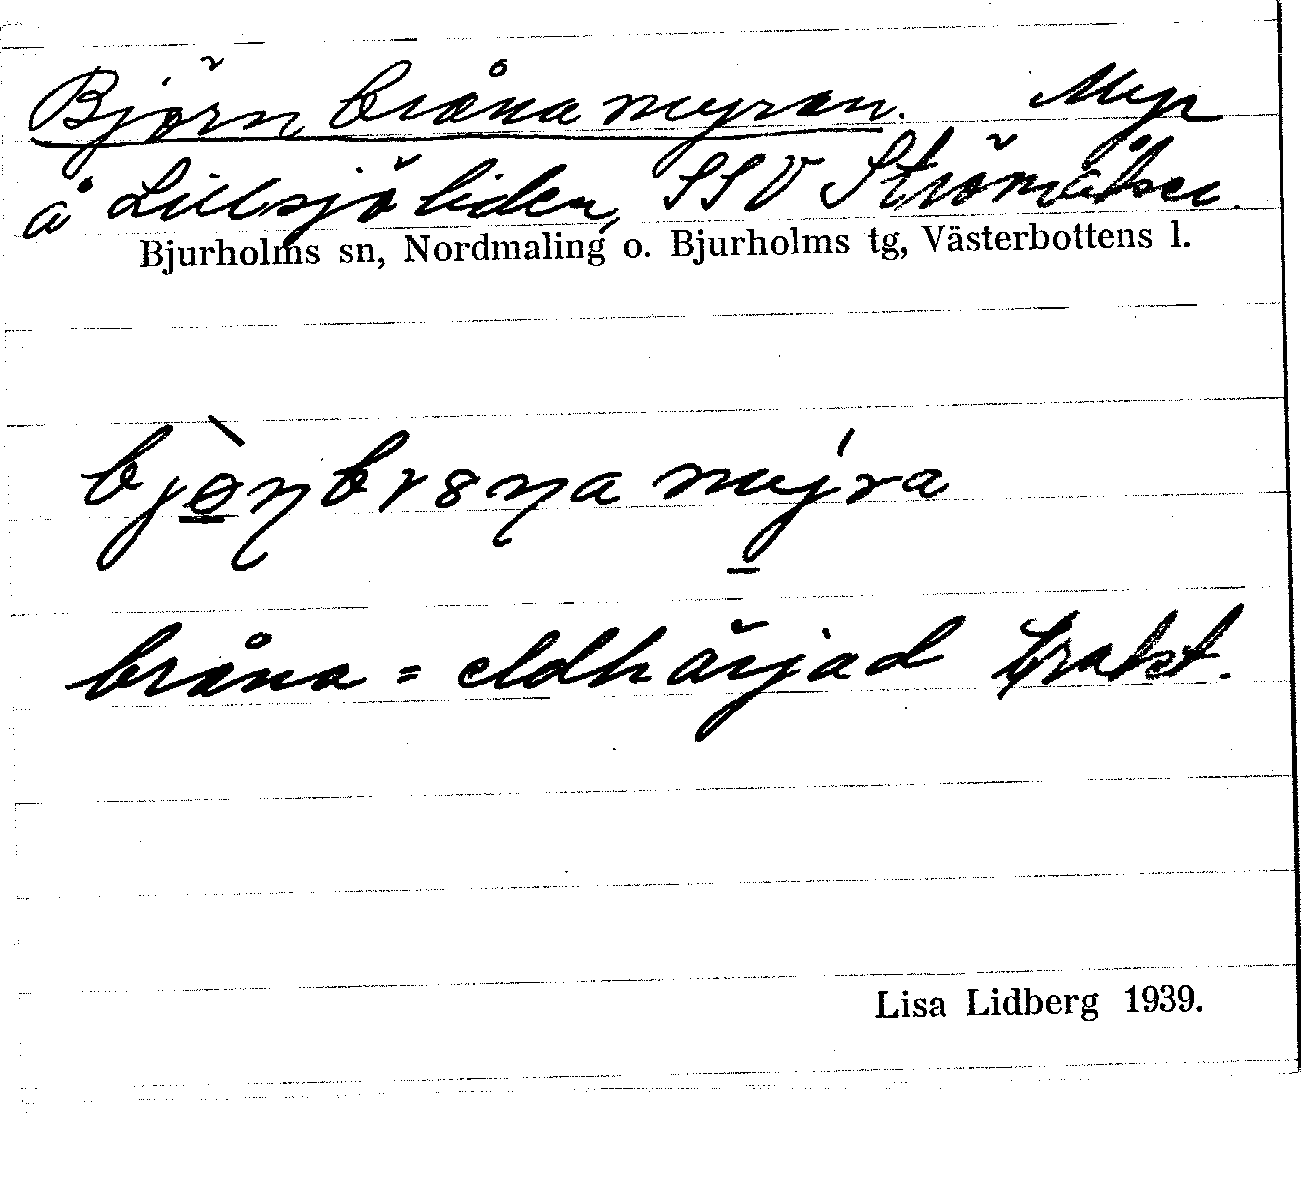 Björnbrånamyran. Myr
å Lillsjöliden, SSV Strömåker.
Bjurholms sn, Nordmaling o. Bjurholms tg, Västerbottens l.
bjò̲ŋbr8ŋa mý̲ra
bråna = eldhärjad trakt.
Lisa Lidberg 1939.